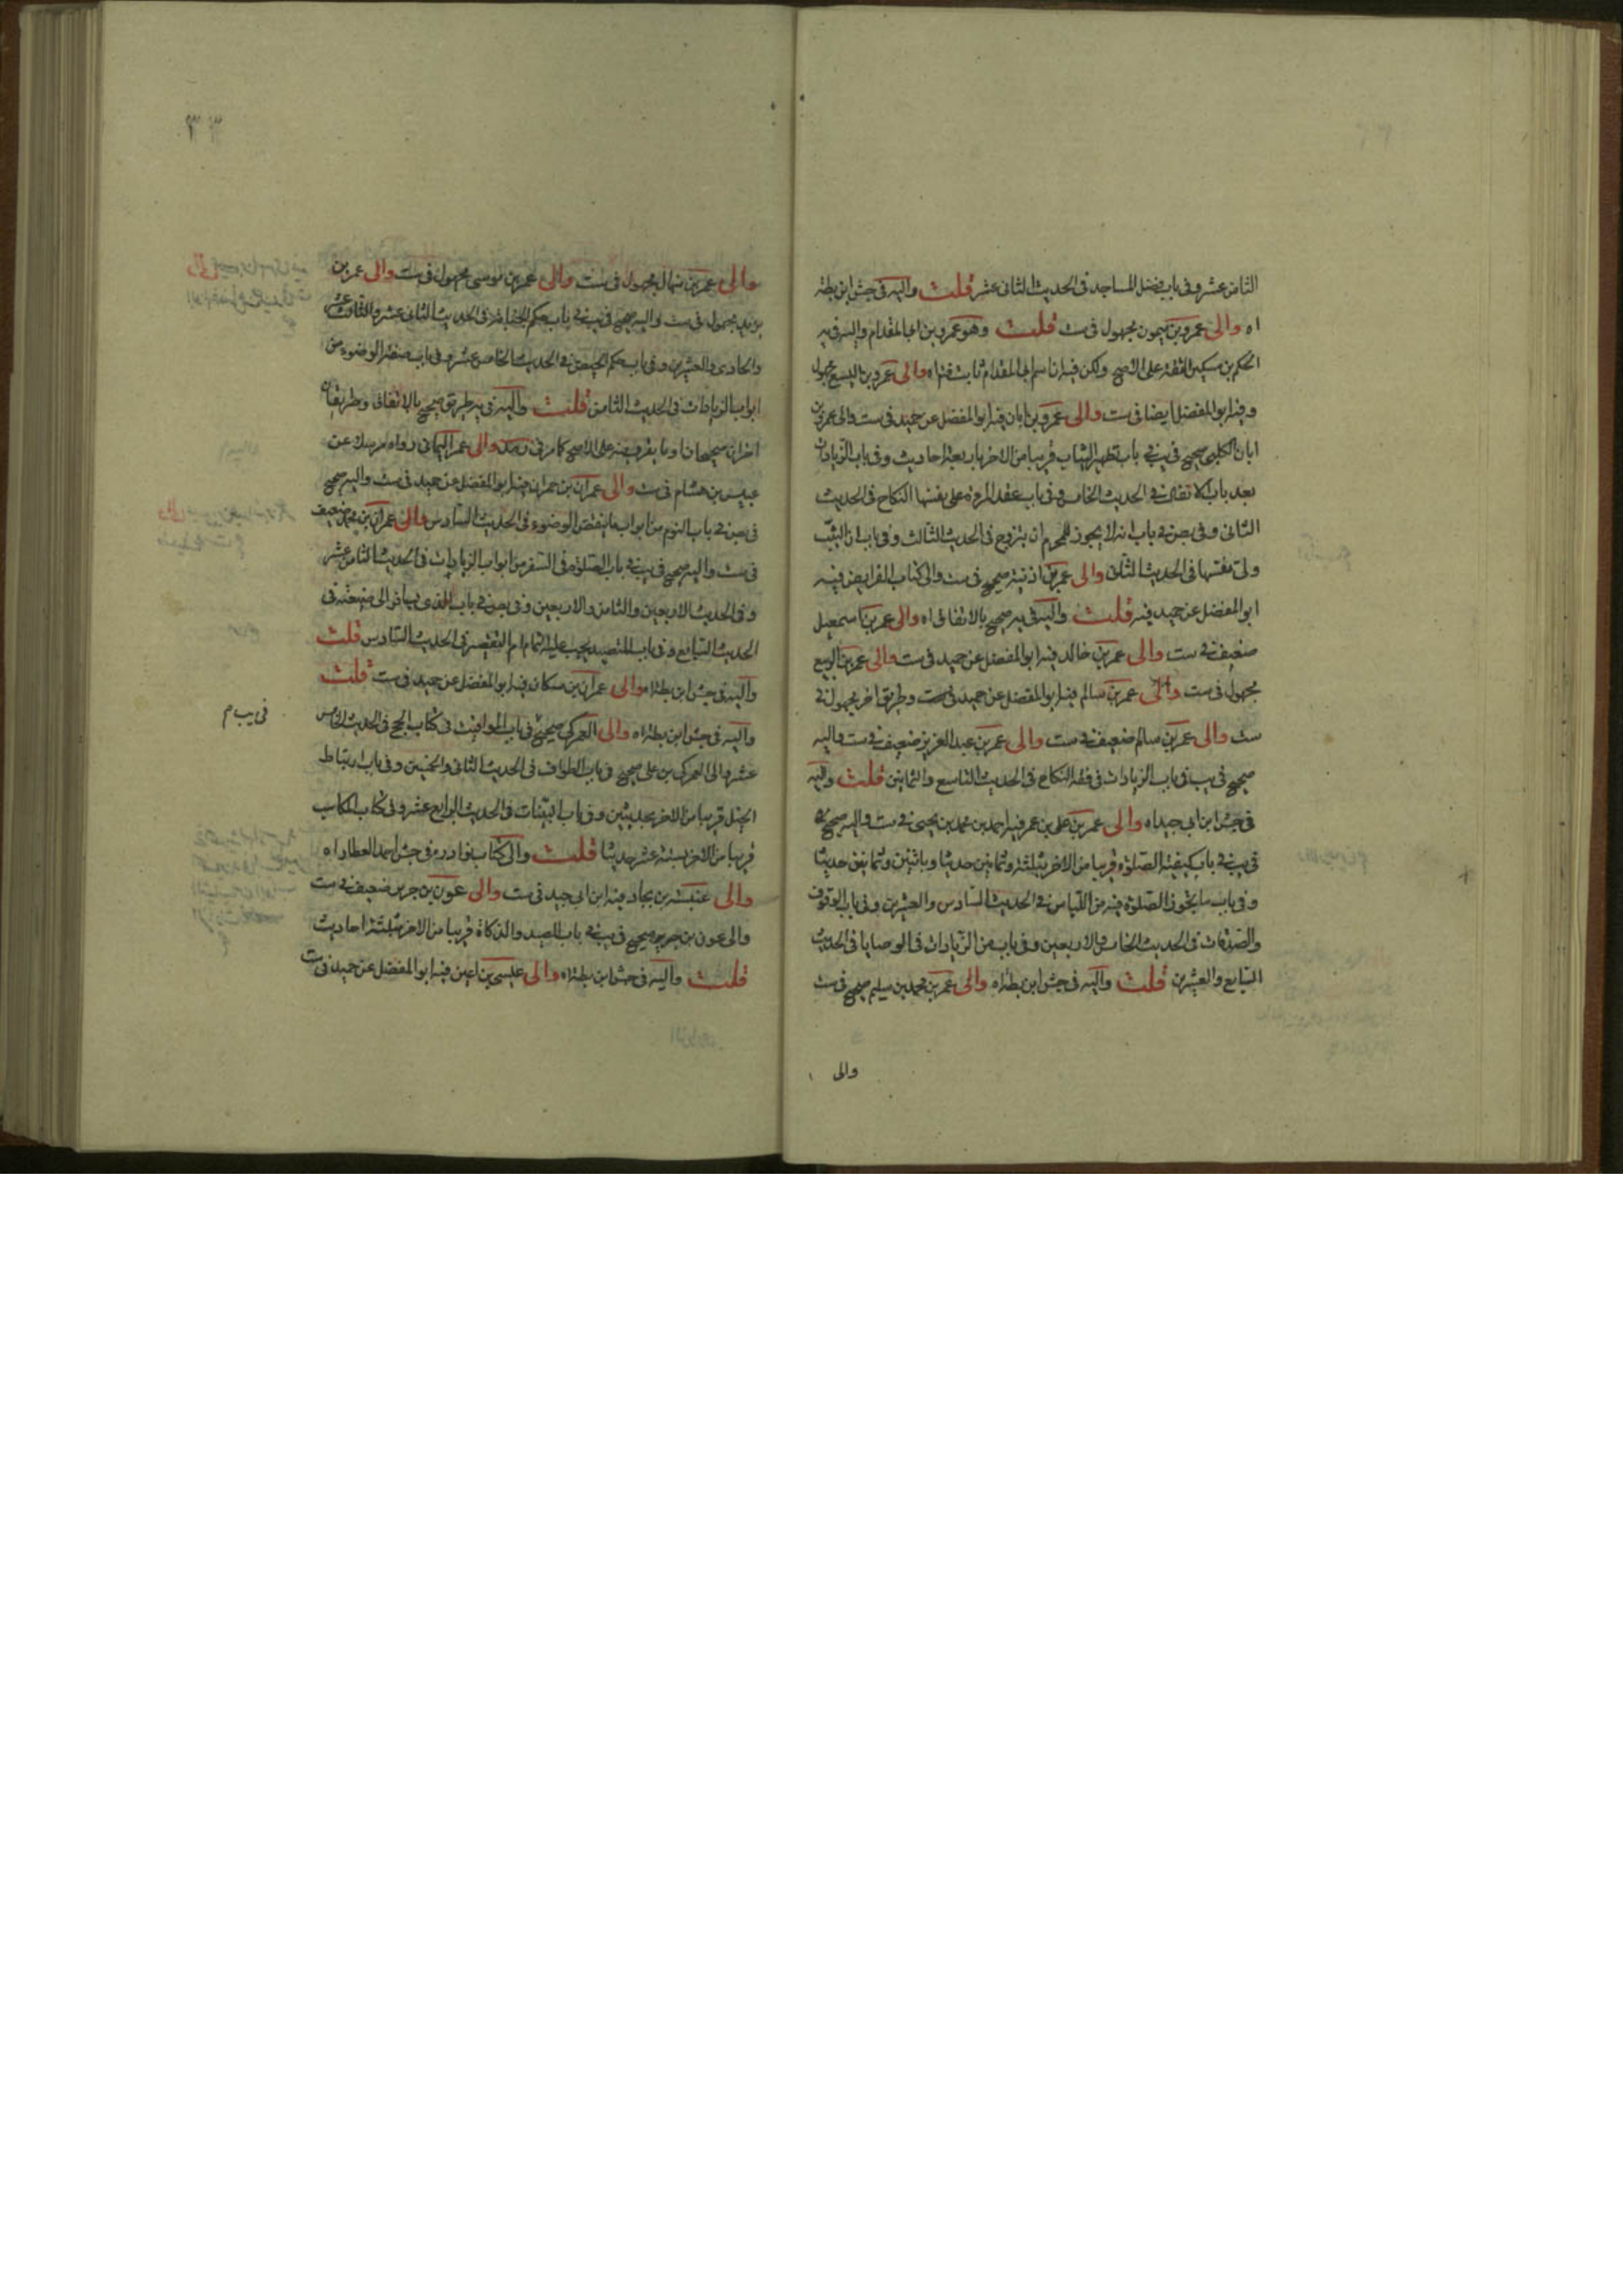 الثامن عشر وفي باب فضل المساجد في الحديث الثاني عشر قلت واليه في جش ابن بطة
اه والى عمرو بن ميمون مجهول في ست قلت وهو عمرو بن ابي المقدام واليه في يه
الحكم بن مسكين الثقة على الاصح ولكن فيه ان اسم ابي المقدام ثابت فتراه والى عمرو بن اليسع مجهول
وفيه ابو المفضل ايضا في ست والى عمرو بن ابان فيه ابو المفضل عن حميد في ست والى عمر بن
ابان الكلبي صحيح في يب في باب تطهير الثياب قريبا من الاخر باربعة احاديث وفي باب الزيادات
بعد باب الاتفاق في الحديث الخامس وفي باب عقد المرءة على نفسها النكاح في الحديث
الثاني وفي بص في باب انه لا يجوز للمحرم ان يتزوج في الحديث الثالث وفي باب ان الثيب
ولي نفسها في الحديث الثاني والى عمر بن اذينة صحيح في ست والى كتاب الفرايض فيه
ابو المفضل عن حميد فيه قلت واليه في يه صحيح بالاتفاق اه والى عمر بن اسمعيل
ضعيف في ست والى عمر بن خالد فيه ابو المفضل عن حميد في ست والى عمر بن الربيع
مجهول في ست والى عمر بن سالم فيه ابو المفضل عن حميد في ست وطريق اخر مجهول في
ست والى عمر بن سالم ضعيف في ست والى عمر بن عبد العزيز ضعيف في ست واليه
صحيح في يب في باب الزيادات في فقه النكاح في الحديث التاسع والثمانين قلت واليه
في جش ابن ابي جيد اه والى عمر بن علي بن عمر فيه احمد بن محمد بن يحيى في ست واليه صحيح
في يب في باب كيفية الصلوة قريبا من الاخر بثلثة وثمانين حديثا وباثنين وثمانين حديثا
وفي باب ما يجوز الصلوة فيه من اللباس في الحديث السادس والعشرين وفي باب الوقوف
والصدقات في الحديث الخامس والاربعين وفي باب من الزيادات في الوصايا في الحديث
السابع والعشرين قلت واليه في جش ابن بطة اه والى عمر بن محمد بن سليم صحيح في ست
والى
٣٣
والى عمر بن منهال مجهول في ست والى عمر بن موسى مجهول في ست والى عمر بن
يزيد مجهول في ست واليه صحيح في يب في باب حكم الجنابة في الحديث الثاني عشر والثالث عشر
والحادي والعشرين وفي باب حكم الحيض في الحديث الخامس عشر وفي باب صفة الوضوء من
ابواب الزيادات في الحديث الثامن قلت واليه في يه طريق صحيح بالاتفاق وطريقان
اخران صحيحان على الاصح كما مر في والى عمر اليماني رواه مرسلا عن
عبيس بن هشام في ست والى عمران بن حمران فيه ابو المفضل عن حميد في ست واليه صحيح
في بص في باب النوم من ابواب ما ينقض الوضوء في الحديث السادس والى عمران بن محمد ضعيف
في ست واليه صحيح في يب في باب الصلوة في السفر من ابواب الزيادات في الحديث الثامن عشر
وفي الحديث الاربعين والثامن والاربعين وفي بص في باب الذي يسافر الى ضيعته في
الحديث السابع وفي باب المتصيد يجب عليه التمام ام التقصير في الحديث السادس قلت
واليه في جش ابن بطة اه والى عمران بن مسكان فيه ابو المفضل عن حميد في ست قلت
واليه في جش ابن بطة اه والى العمركي صحيح في باب المواقيت في كتاب الحج في الحديث الخامس
في يب م
عشر والى العمركي بن علي صحيح في باب الطواف في الحديث الثاني والخمسين وفي باب ارتباط
الخيل قريبا من الاخر بحديثين وفي باب البينات في الحديث الرابع عشر وفي كتاب المكاسب
قريبا من الاخر بستة عشر حديثا قلت والى كتاب نوادره في جش احمد العطار اه
والى عنبسة بن بجاد فيه ابن ابي جيد في ست والى عون بن جرير ضعيف في ست
والى عون بن جرير صحيح في يب في باب الصيد والذكاة قريبا من الاخر بثلثة احاديث
قلت واليه في جش ابن بطة اه والى عيسى بن اعين فيه ابو المفضل عن حميد في ست